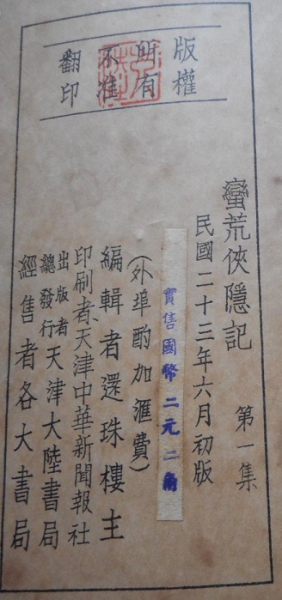 版權
所有
不准
翻印
蠻荒俠隱記 第一集
民國二十三年六月初版
實售國幣二元二角
(外埠酌加滙費)
編輯者還珠樓主
印刷者、天津中華新聞報社
出版者
總發行 天津大陸書局
經售者各大書局